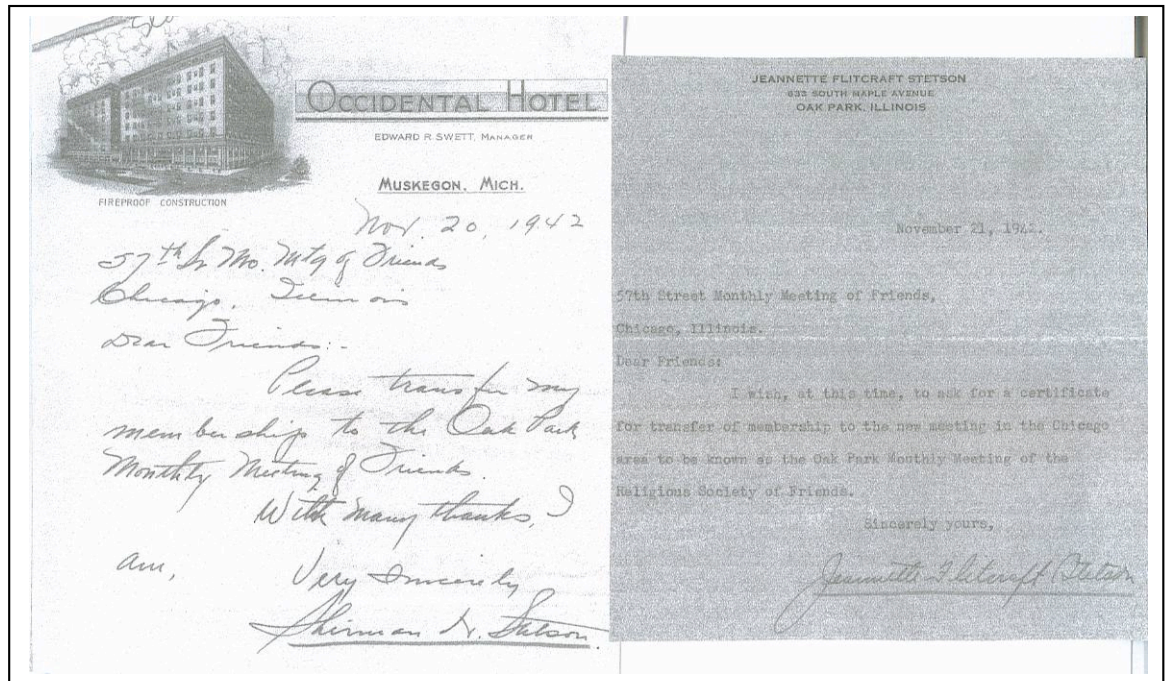 OCCIDENTAL HOTEL
EDWARD R. SWETT, MANAGER
MUSKEGON, MICH.
FIREPROOF CONSTRUCTION
Nov. 20, 1942
57th St Mo. Mtg of Friends
Chicago, Illinois
Dear Friends:-
Please transfer my
membership to the Oak Park
Monthly Meeting of Friends.
With many thanks, I
am,
Very Sincerely
Sherman Stetson.
JEANNETTE FLITCRAFT STETSON
SOUTH MAPLE AVENUE
OAK PARK, ILLINOIS
November 21,
57th Street Monthly Meeting of Friends,
Chicago, Illinois.
Dear Friends:
I wish, at this time, to ask for a certificate
for transfer of membership to the new meeting in the Chicago
area to be known as the Oak Park Monthly Meeting of the
Religious Society of Friends.
Sincerely yours,
Jeannette Flitcraft Stetson